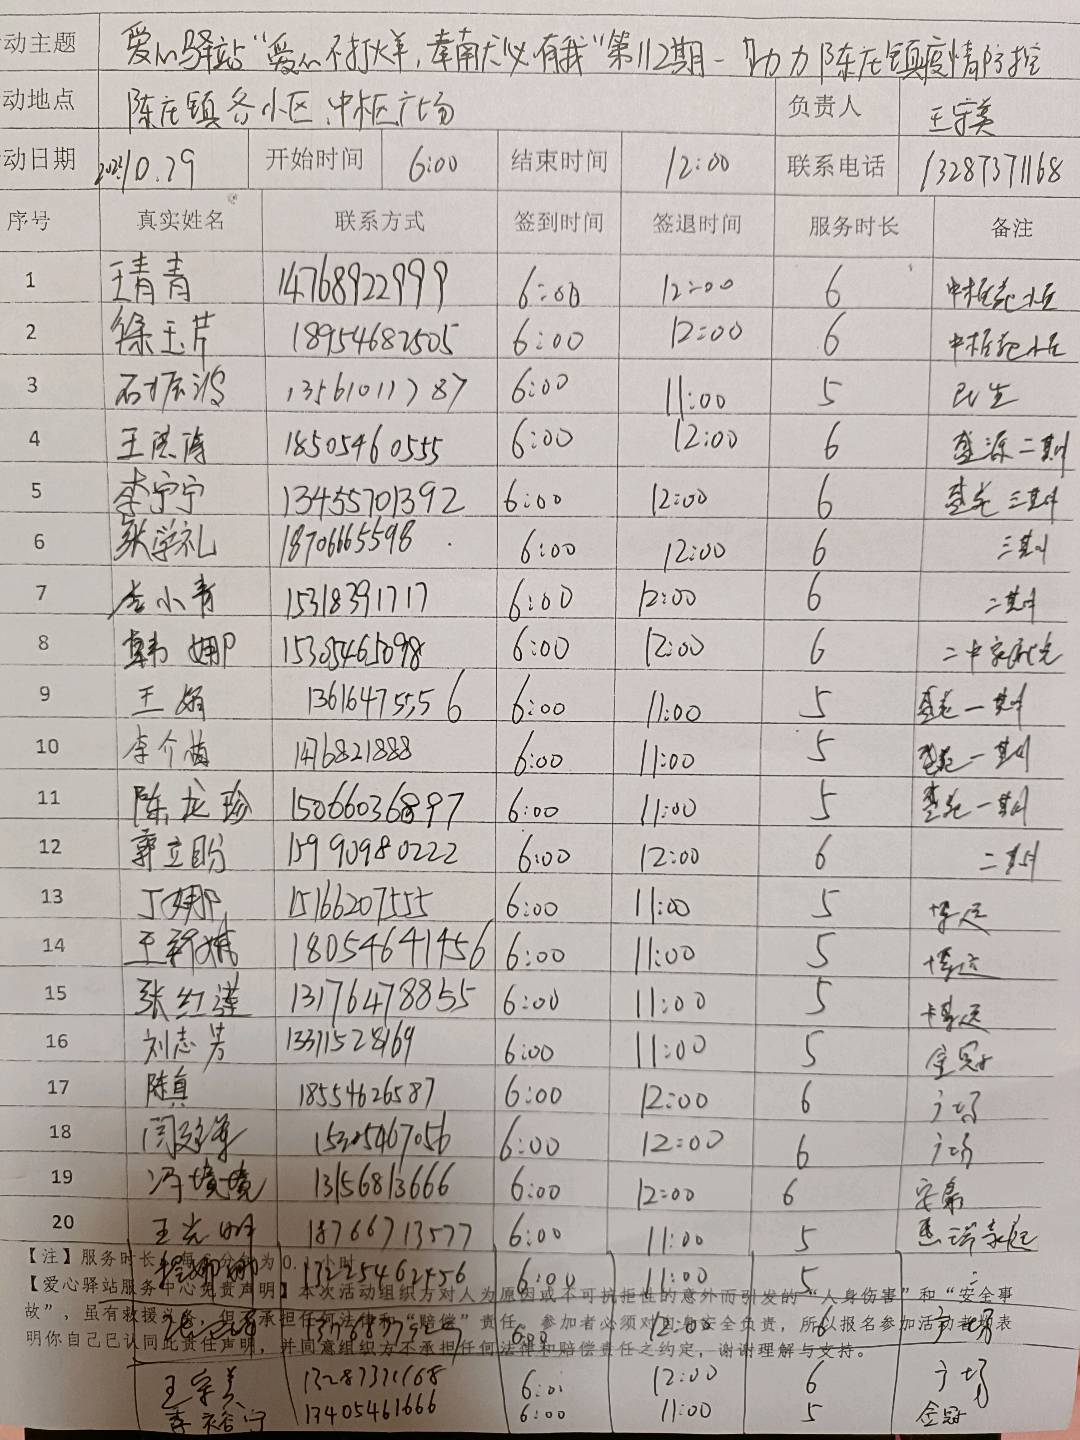 动主题 爱心驿站"爱心不打烊，幸南大必有我"第112期-助力陈庄镇疫情防控
动地点 陈庄镇各小区 中枢广场 负责人 王宇美
动日期 10.29 开始时间 6:00 结束时间 12:00 联系电话 13287371168
序号 真实姓名 联系方式 签到时间 签退时间 服务时长 备注
1 王青青 14768922999 6:00 12:00 6
2 徐玉芹 18954682505 6:00 12:00 6
3 13561011787 6:00 11:00 5 民生
4 王洪涛 18505460555 6:00 12:00 6 盛源二期
5 李宁宁 13455701392 6:00 12:00 6 盛苑三期
6 张学礼 18706665598 6:00 12:00 6 三期
7 李小青 15318391717 6:00 12:00 6 二期
8 韩娜 15305465098 6:00 12:00 6
9 王娟 13616475556 6:00 11:00 5 盛苑一期
10 1476821888 6:00 11:00 5 盛苑一期
11 陈龙珍 15066036897 6:00 11:00 5 盛苑一期
12 郭立盼 15990980222 6:00 12:00 6 二期
13 丁娜 15166207555 6:00 11:00 5 博运
14 王新婧 18054641456 6:00 11:00 5 博运
15 张红莲 13176478855 6:00 11:00 5 博运
16 刘志芳 13311528169 6:00 11:00 5 金冠
17 陈真 18554626587 6:00 12:00 6 广场
18 15305467056 6:00 12:00 6 广场
19 冯媛媛 13156813666 6:00 12:00 6 安泰
20 王光明 18766713577 6:00 11:00 5
【注】服务时长 每 分 为0. 小时
程娜娜 13225462456 6:00 11:00 5
【爱心驿站服务中心免责声明】本次活动组织方对人为原因或不可抗拒性的意外而引发的"人身伤害"和"安全事
故"，虽有救援义务，但不承担任何法律和"赔偿"责任。参加者必须对自身安全负责，所以报名参加活动者均表
6:00 12:00 6 广场
明你自己已认同此责任声明，并同意组织方不承担任何法律和赔偿责任之约定，谢谢理解与支持。
王宇美 13287371168 6:01 12:00 6 广场
李裕宁 13405461666 6:00 11:00 5 金冠